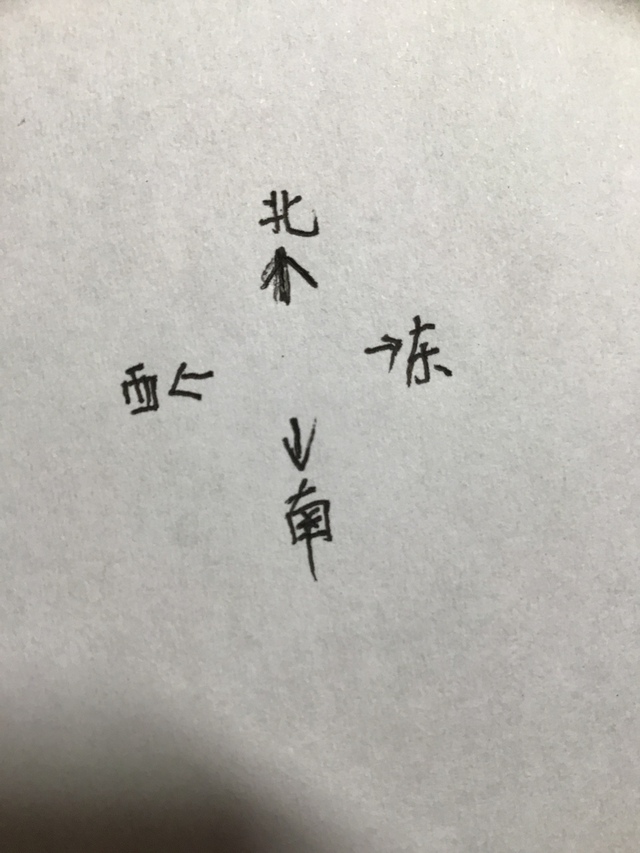 北
↑
→东
西←
↓
南